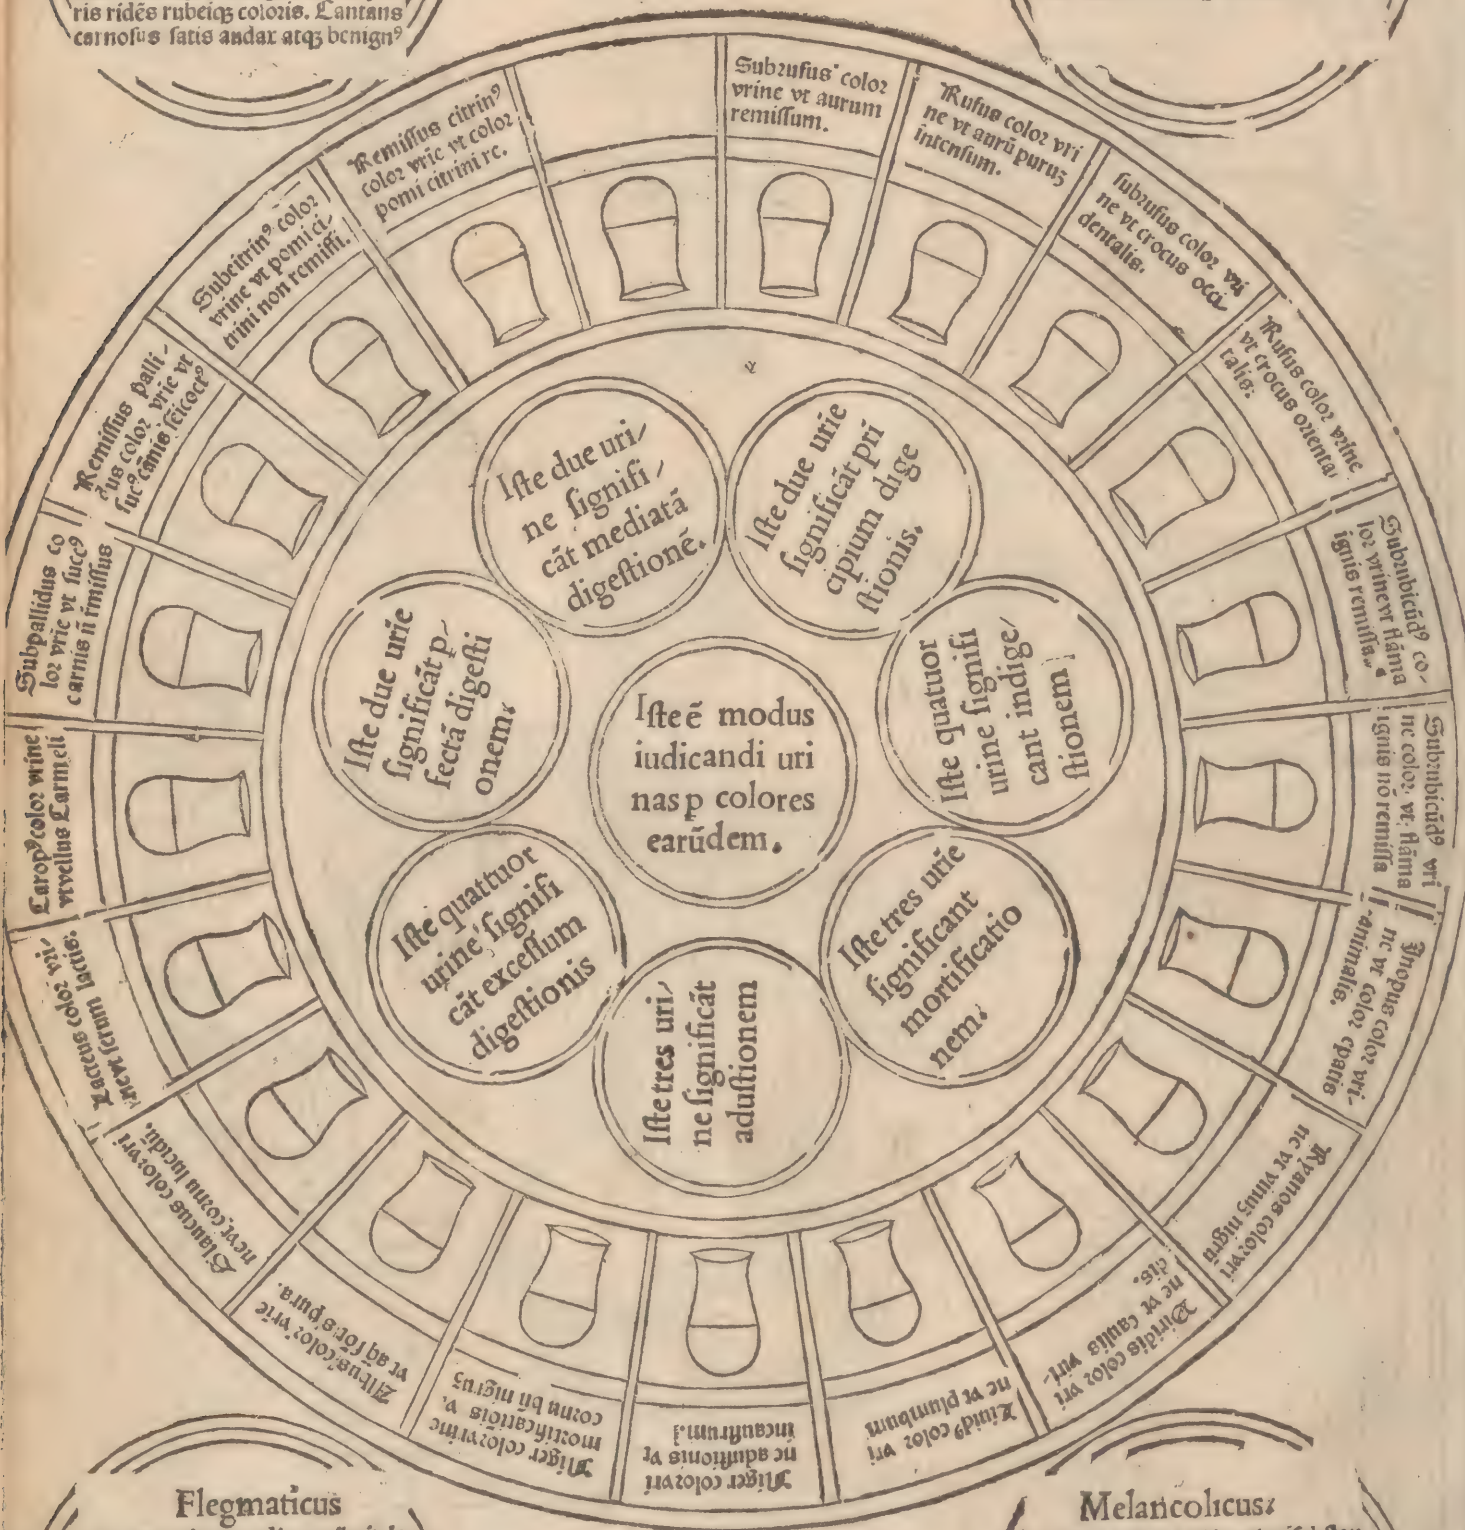 ris ridēs rubeiqꝫ coloris. Cantans
carnosus satis audax atqꝫ benignꝰ
Subrufus color
vrine vt aurum
remissum.
Rufus color vri
ne vt aurū puruꝫ
intensum.
subrufus color vri
ne vt crocus occi
dentalis.
Rufus color vrine
vt crocus orienta/
talis.
Subrubicūdꝰ co-
lor vrine vt flāma
ignis remissa.
Subrubicūdꝰ vri
ne color vt flāma
ignis nō remissa
Ynopus color vri-
ne vt color epatis
animalis.
Kyanos color vri
ne vt vinuꝫ nigrū
Viridis color vri
ne vt caulis viri-
dis.
Liuidꝰ color vri
ne vt plumbum
Niger color vri
ne adustionis vt
incaustrum.
Niger color vrine
mortificatiōis v.
cornu bn̄ nigruꝫ
Albus color vrie
vt aq̄ fōtis pura.
Glaucus color vri
ne vt cornu lucidū.
Lacteus color vri-
ne vt serum lactis.
Caropꝰ color vrine
vt vellus Carmeli
Subpallidus co
lor vrie vt succꝰ
carnis n̄ rmissus
Remissus palli/
dus color vrie vt
sucꝰ cānis seicoctꝰ
Subcitrinꝰ color
vrine vt pomi ci/
trini non remissi.
Remissus citrinꝰ
color vrie vt color
pomi citrini re.
Iste due uri/
ne signifi/
cāt mediatā
digestionē.
Iste due urie
significāt pri
cipium dige
stionis.
Iste quatuor
urine signifi
cant indige/
stionem
Iste tres urie
significant
mortificatio
nem:
Iste tres uri/
ne significāt
adustionem
Iste quattuor
urine signifi
cāt excessum
digestionis
Iste due urie
significāt p/
fectā digesti
onem:
Iste ē modus
iudicandi uri
nas p colores
earūdem.
Flegmaticus
Melancolicus: